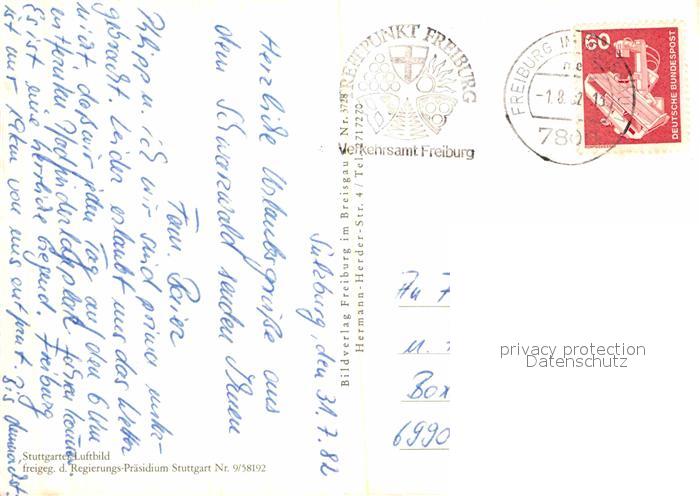 Sulzburg, den 31.7.82
Herzliche Urlaubsgrüße aus
dem Schwarzwald senden Ihnen
Fam.
Philipp u. ich wir sind prima unter-
gebracht. Leider erlaubt uns das Wetter
nicht, daß wir jeden Tag an den 6 km
entfernten Pfadfinderlagerplatz fahren können.
Es ist eine herrliche Gegend. Freiburg
ist nur 19 km von uns entfernt. Bis demnächst
Stuttgarter Luftbild
freigeg. d. Regierungs-Präsidium Stuttgart Nr. 9/58192
Bildverlag Freiburg im Breisgau Nr. 3728
Hermann-Herder-Str. 4 / Tel. 71 72 70
TREFFPUNKT FREIBURG
Verkehrsamt Freiburg
FREIBURG IM
-1.8.82-13
7800
60
DEUTSCHE BUNDESPOST
An F
u.
Box
6990
privacy protection
Datenschutz